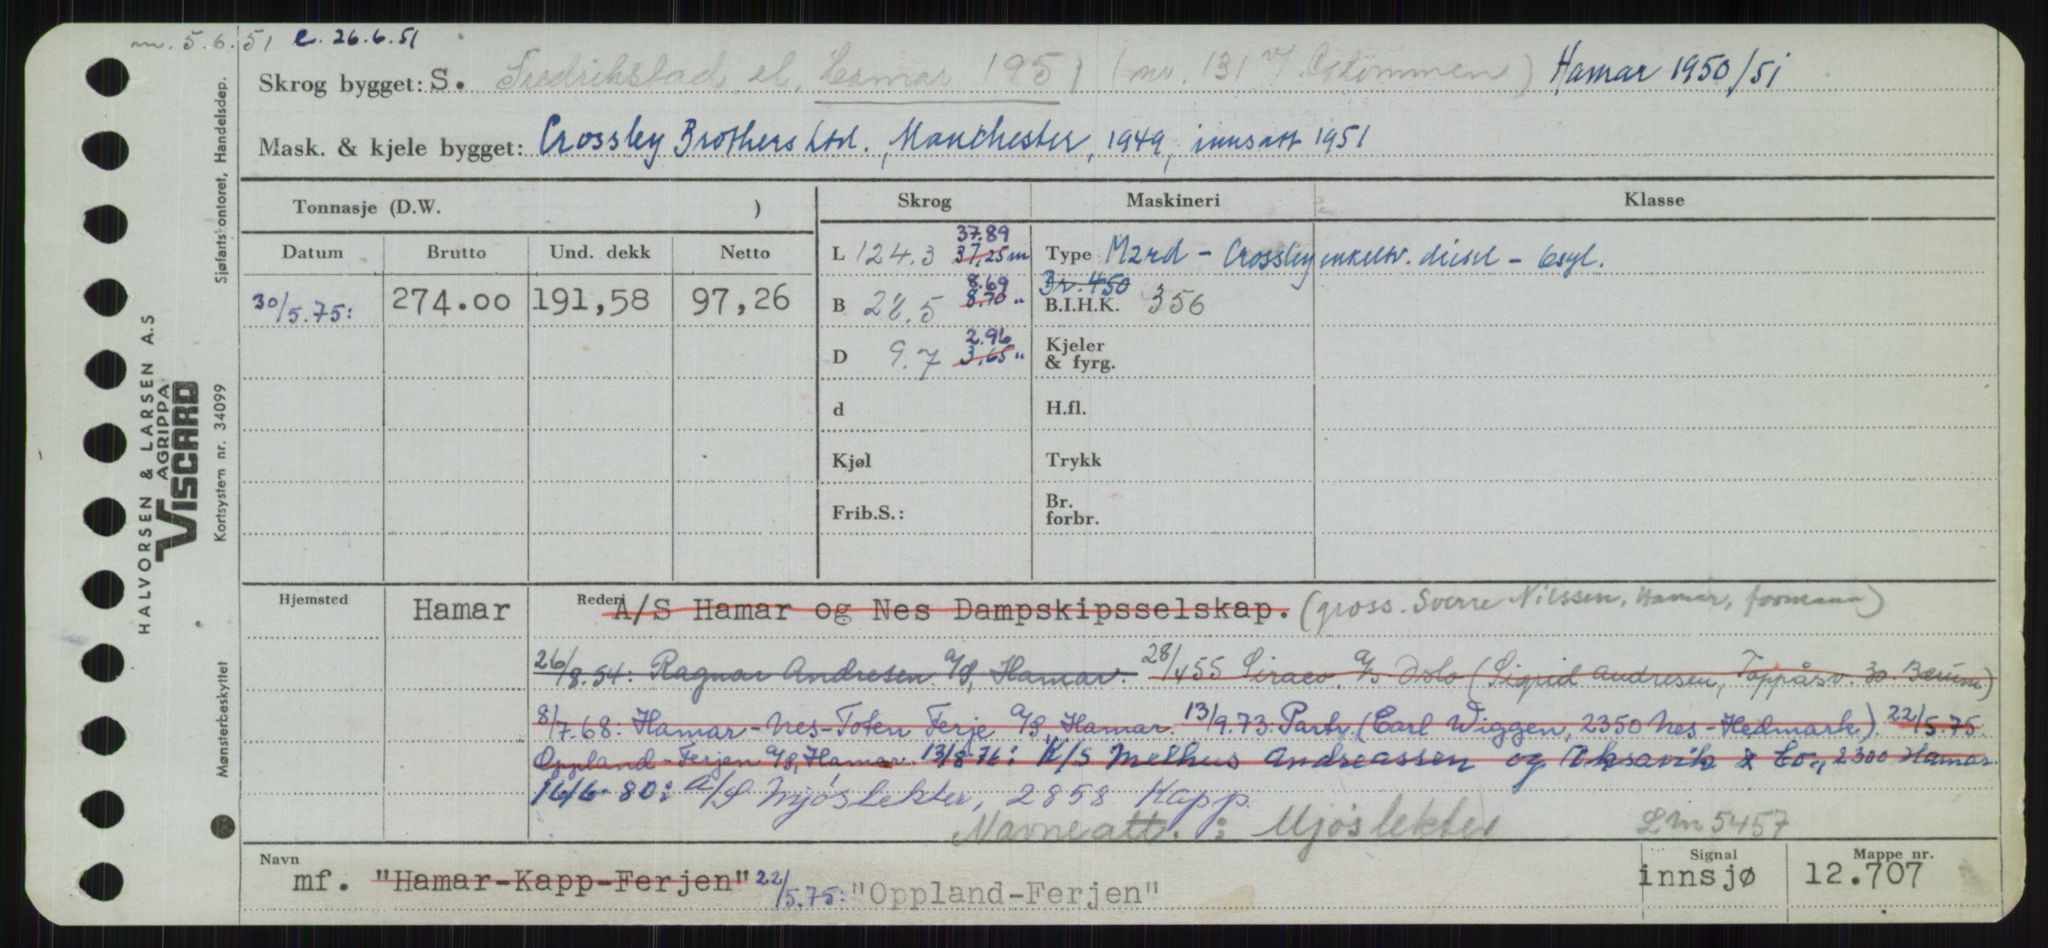 m. 5.6.51 e. 26.6.51
Skrog bygget: S. Fredrikstad el. Hamar 1951 (nr. 131 Glommen) Hamar 1950/51
Mask. & kjele bygget: Crossley Brothers Ltd., Manchester, 1949, innsatt 1951
Tonnasje (D.W. ) Skrog Maskineri Klasse
Datum Brutto Und. dekk Netto
37.89
L 124.3 37,25 m Type M2rd - Crossley enkeltv. diesel - 6syl.
8.69 Br. 450
30/5.75: 274.00 191,58 97,26 B 28.5 8.70 " B.I.H.K. 356
2.96
D 9.7 3,65 " Kjeler & fyrg.
d H.fl.
Kjøl Trykk
Frib.S.: Br. forbr.
Hjemsted Hamar Rederi A/S Hamar og Nes Dampskipsselskap. (gross. Sverre Nilssen, Hamar, formann)
26/8.54: Ragnar Andresen A/S, Hamar. 28/455 Siraco A/S Oslo (Sigrid Andresen, Toppåsv. 30. Bærum)
8/7.68: Hamar-Nes-Toten Ferje A/S, Hamar. 13/9.73. Partr. (Earl Wiggen, 2350 Nes-Hedmark). 22/5.75.
Oppland-Ferjen A/S, Hamar. 13/8-76: K/S Melhus Andreassen og Oksavik & Co., 2300 Hamar.
16/6-80: A/S Mjøslekter, 2858 Kapp.
Navneatt. : Mjøslekter Lm 5457
Navn Signal Mappe nr.
mf. "Hamar-Kapp-Ferjen" 22/5.75: "Oppland-Ferjen" innsjø 12.707
HALVORSEN & LARSEN A.S
AGRIPPA
VISCARD
Mønsterbeskyttet Kortsystem nr. 34099 Sjøfartskontoret, Handelsdep.